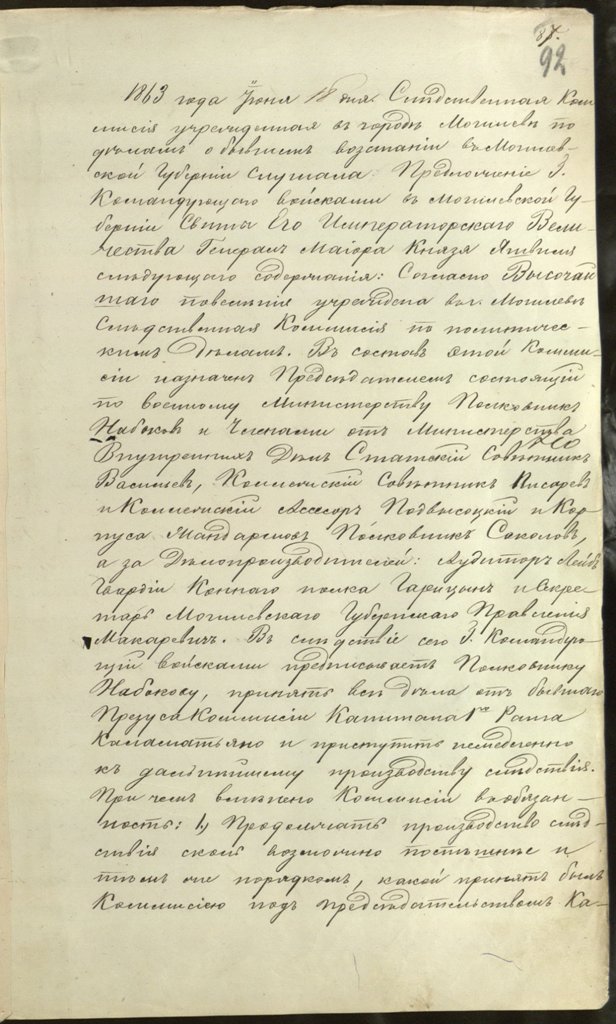 87.
92
1863 года Июня 18 дня. Следственная Ком
мисія учрежденная въ городѣ Могилевѣ по
дѣламъ о бывшемъ возстаніи въ Могилев-
ской Губерніи слушала: Предложеніе З.
Командующаго войсками въ Могилевской Гу-
берніи Свиты Его Императорскаго Вели-
чества Генералъ Маіора Князя Яшвиля
слѣдующаго содержанія: Согласно Высочай
шаго повелѣнія учреждена въ г. Могилевѣ
Слѣдственная Коммисія по политичес-
кимъ дѣламъ. Въ составъ этой Комми-
сіи назначенъ Предсѣдателемъ состоящій
по военному Министерству Полковникъ
Набоковъ и Членами отъ Министерства
Внутреннихъ Дѣлъ Статскій Совѣтникъ
Васильевъ, Коллежскій Совѣтникъ Писаревъ
и Коллежскій Асесоръ Подвысоцкій и Кор-
пуса Жандармовъ Полковникъ Соколовъ,
а за Дѣлопроизводителей: Аудиторъ Лейбъ
Гвардіи Коннаго полка Гарицынъ и Секре-
тарь Могилевскаго Губернскаго Правленія
Макаревичъ. Въ слѣдствіе сего З. Командую-
щій войсками предписываетъ Полковнику
Набокову, принять всѣ дѣла отъ бывшаго
Презуса Коммисіи Капитана 1го Ранга
Каламатьяно и приступить немедленно
къ дальнѣйшему производству слѣдствія.
При чемъ вмѣнено Коммисіи въ обязан-
ность: 1, Продолжать производство слѣд-
ствія сколь возможно поспѣшнѣе и
тѣмъ же порядкомъ, какой принятъ былъ
Коммисіею подъ предсѣдательствомъ Ка-